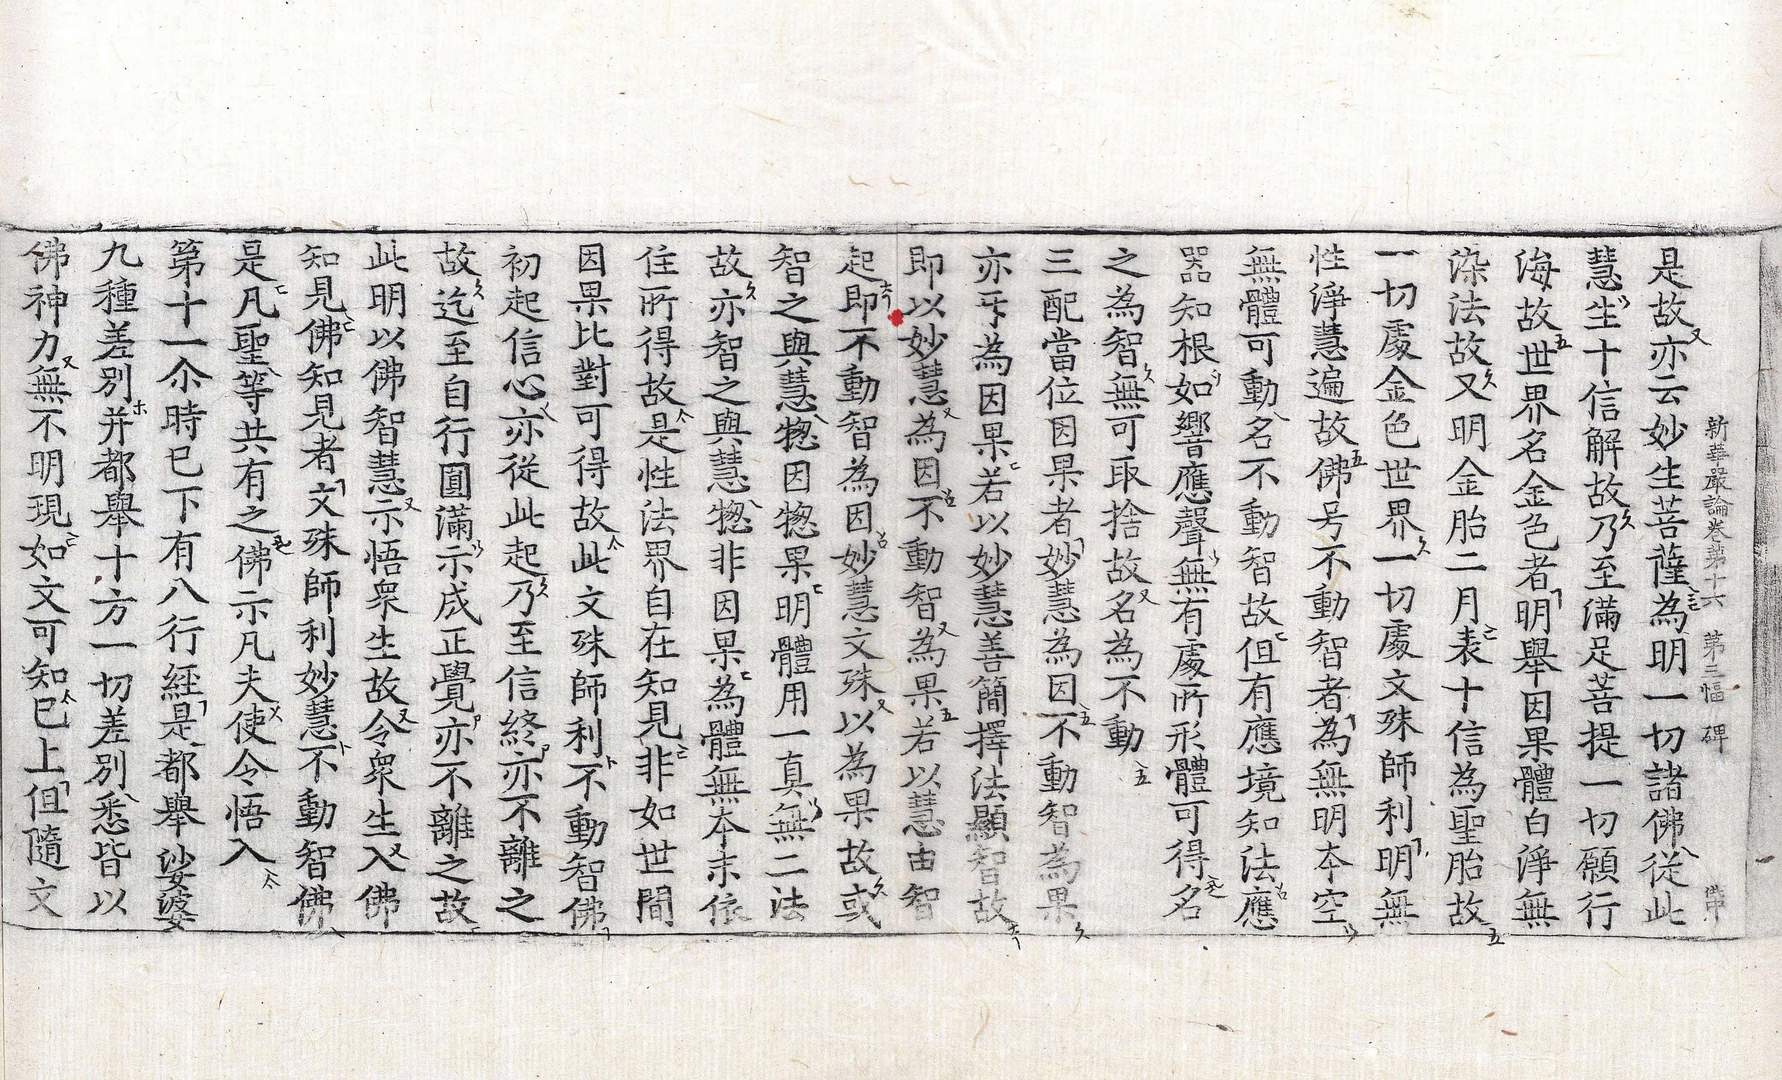 新華嚴論卷第十六　第三幅　碑
是故亦云妙生菩薩為明一切諸佛從此
慧生十信解故乃至滿足菩提一切願行
海故世界名金色者明舉因果體白淨無
染法故又明金胎二月表十信為聖胎故
一切處金色世界一切處文殊師利明無
性淨慧遍故佛号不動智者為無明本空
無體可動名不動智故但有應境知法應
器知根如響應聲無有處所形體可得名
之為智無可取捨故名為不動
三配當位因果者妙慧為因不動智為果
亦㸦為因果若以妙慧善簡擇法顯智故
即以妙慧為因不動智為果若以慧由智
起即不動智為因妙慧文殊以為果故或
智之與慧惣因惣果明體用一真無二法
故亦智之與慧惣非因果為體無本末依
住所得故是性法界自在知見非如世間
因果比對可得故此文殊師利不動智佛
初起信心亦從此起乃至信終亦不離之
故迄至自行圓滿示成正覺亦不離之故
此明以佛智慧示悟衆生故令衆生入佛
知見佛知見者文殊師利妙慧不動智佛
是凡聖等共有之佛示凡夫使令悟入
第十一尒時已下有八行經是都舉娑婆
九種差別并都舉十方一切差別悉皆以
佛神力無不明現如文可知已上但隨文